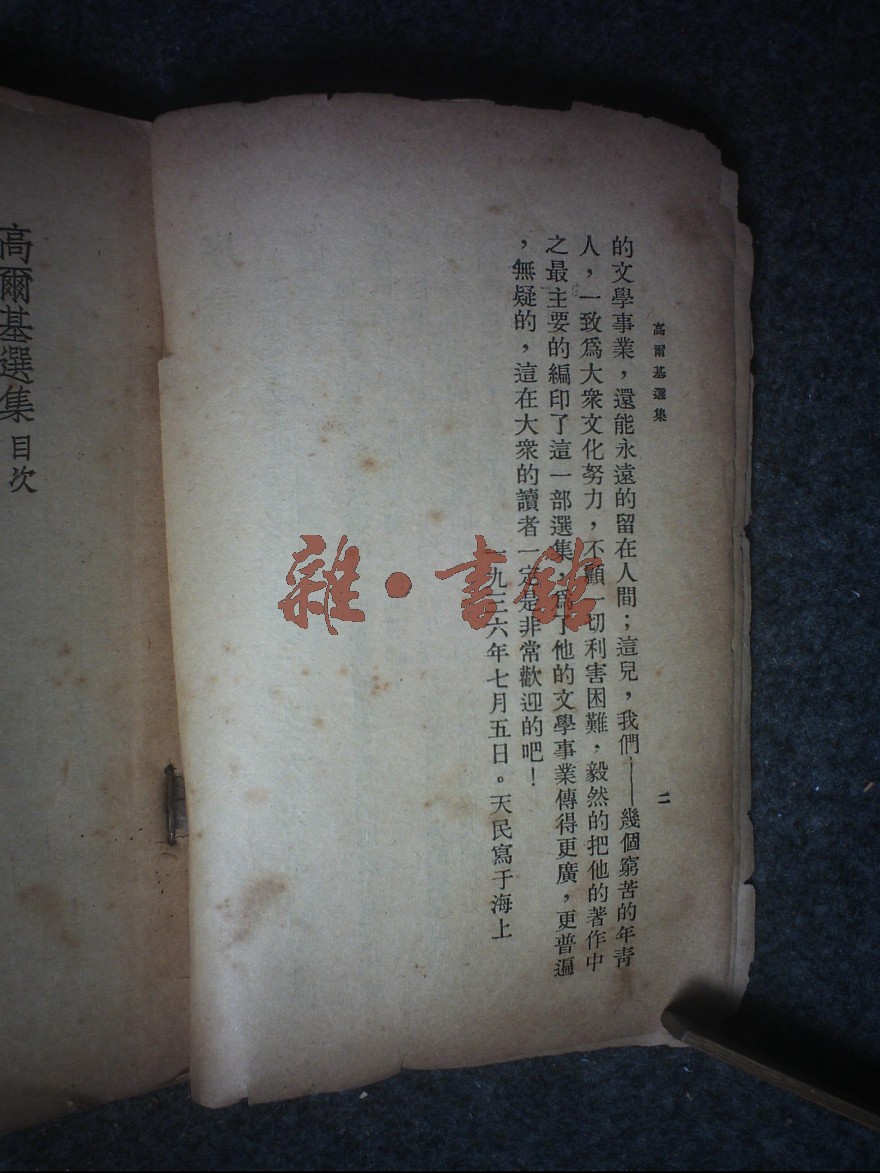 高爾基選集
二
的文學事業，還能永遠的留在人間；這兒，我們——幾個窮苦的年青
人，一致爲大衆文化努力，不顧一切利害困難，毅然的把他的著作中
之最主要的編印了這一部選集，爲了他的文學事業傳得更廣，更普遍
，無疑的，這在大衆的讀者一定是非常歡迎的吧！
一九三六年七月五日。天民寫于海上
高爾基選集 目次
雜·書館